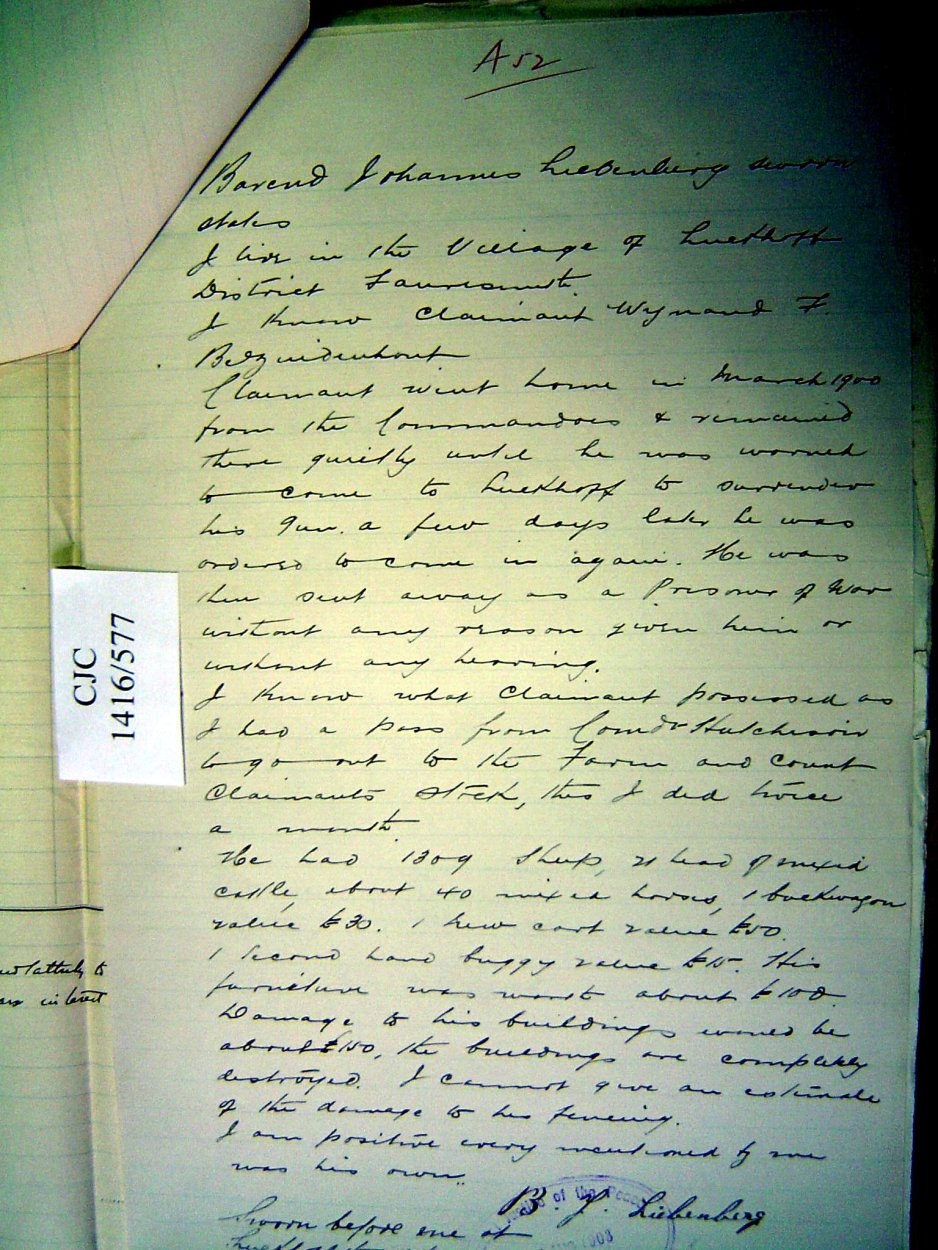 A 52
Barend Johannes Liebenberg sworn
states
I live in the Village of Luckhoff
District Fauresmith.
I know Claimant Wynand F.
Bezuidenhout
Claimant went home in March 1900
from the Commandoes & remained
there quietly until he was warned
to come to Luckhoff to surrender
his gun. a few days later he was
ordered to come in again. He was
then sent away as a Prisoner of War
without any reason given him or
without any hearing.
I know what Claimant possessed as
I had a pass from Comdr Hutcheson
to go out to the Farm and count
Claimants stock, this I did twice
a month.
He had 1309 sheep, 21 head of mixed
cattle, about 40 mixed horses, 1 buckwagon
value £30. 1 new cart value £50.
1 second hand buggy value £15. His
furniture was worth about £100.
Damage to his buildings would be
about £150, the buildings are completely
destroyed. I cannot give an estimate
of the damage to his fencing.
I am positive every mentioned by me
was his own.
B. J. Liebenberg
Sworn before me at
Luckhoff
of the Peace
CJC
1416/577
to
interest